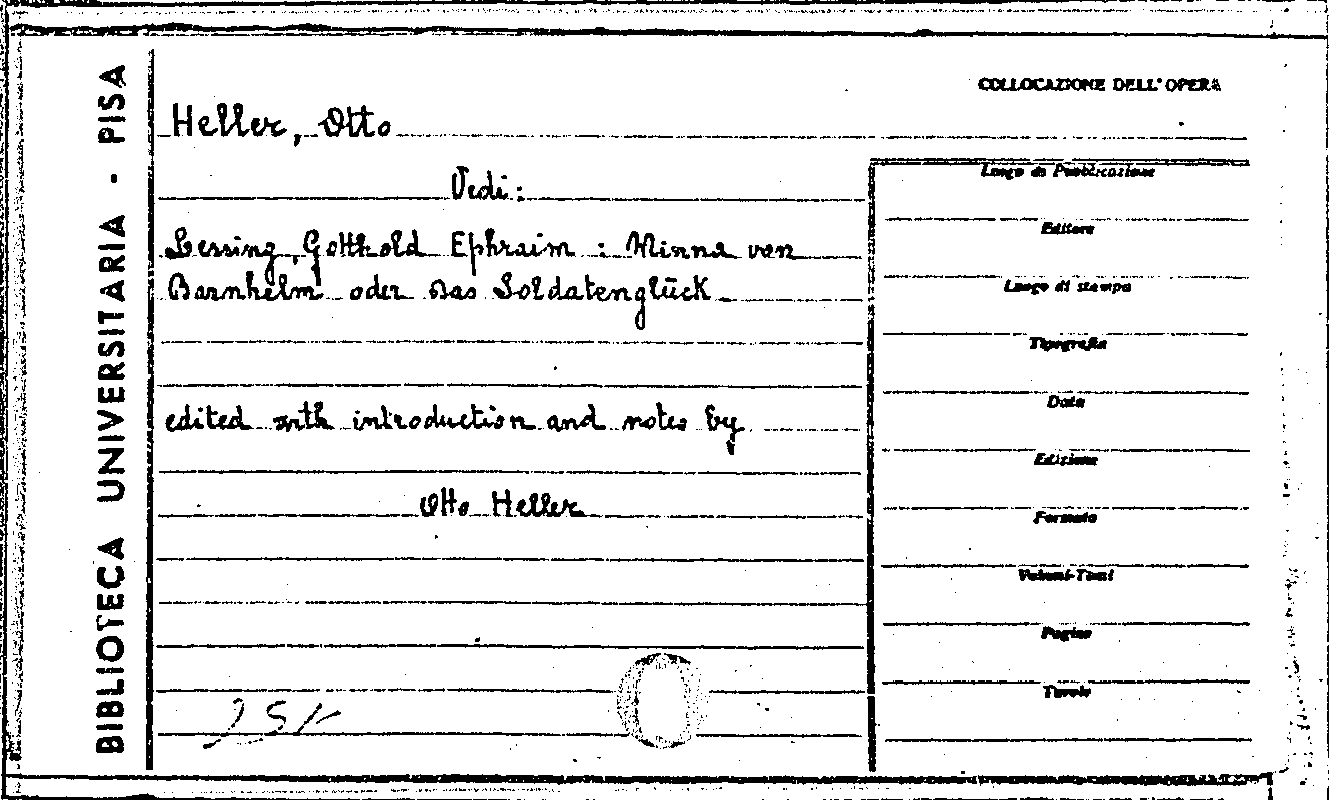 BIBLIOTECA UNIVERSITARIA · PISA
COLLOCAZIONE DELL'OPERA
Heller, Otto
Vedi:
Lessing, Gotthold Ephraim : Minna von
Barnhelm oder das Soldatenglück
edited with introduction and notes by
Otto Heller
Luogo di Pubblicazione
Editore
Luogo di stampa
Tipografia
Data
Edizione
Formato
Volumi-Tomi
Pagine
Tavole